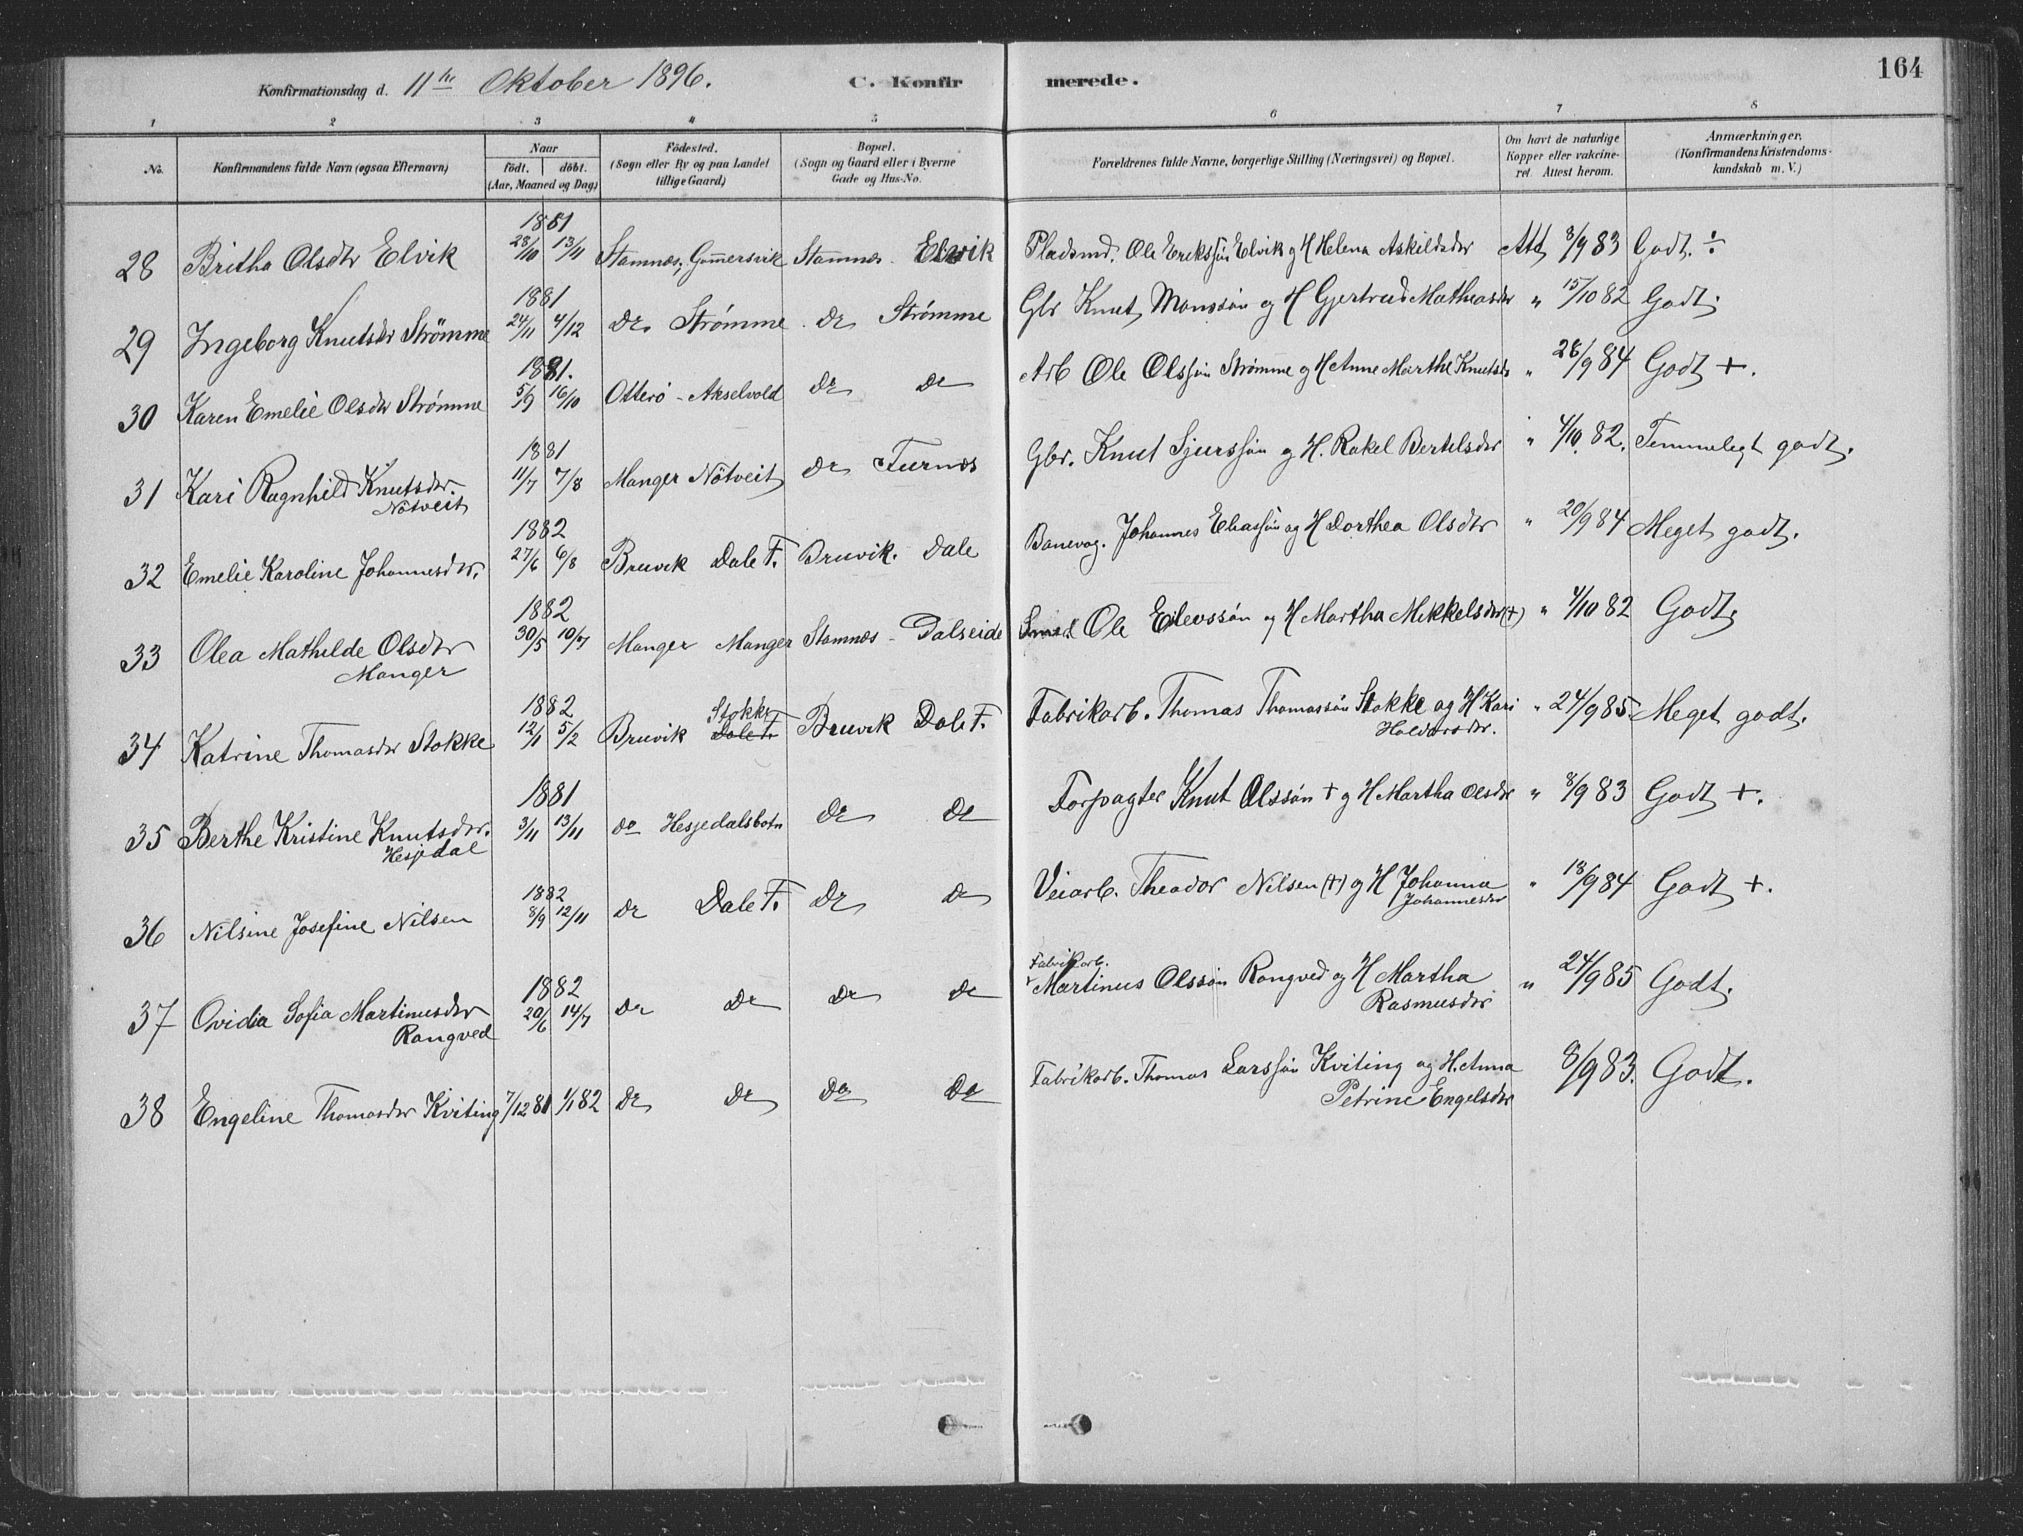 Konfirmationsdag d. 11te Oktober 1896. C. Konfirmerede. 164
1 2 3 4 5 6 7 8
No. Konfirmandens fulde Navn (ogsaa Efternavn) Naar födt. döbt. (Aar, Maaned og Dag) Födested. (Sogn eller By og paa Landet tillige Gaard) Bopæl. (Sogn og Gaard eller i Byerne Gade og Hus-No. Forældrenes fulde Navne, borgerlige Stilling (Næringsvei) og Bopæl. Om havt de naturlige Kopper eller vakcineret. Attest herom. Anmærkninger. (Konfirmandens Kristendomskundskab m. V.)
1881
28 Britha Olsdtr Elvik 28/10 13/11 Stamnæs, Gammersvik Stamnæs Elvik Pladsmd. Ole Erikssøn Elvik og H Helena Askildsdtr Att 8/9 83 Godt. ÷
1881
29 Ingeborg Knutsdr Strömme 24/11 4/12 Do Strømme Do Strømme Gbr Knut Monssøn og H Gjertrud Matheasdr " 15/10 82 Godt.
1881.
30 Karen Emelie Olsdtr Strømme 5/9 16/10 Otterö - Akselvold Do Do Arb Ole Olssøn Strømme og H Anne Marthe Knutsdr " 28/9 84 Godt +.
1881
31 Kari Ragnhild Knutsdr. 11/7 7/8 Manger Nötveit Do Furnæs Gbr. Knut Sjurssøn og H. Rakel Bertelsdr " 4/10 82. Temmeligt godt.
Nötveit
1882
32 Emelie Karoline Johannesdr. 27/6 6/8 Bruvik Dale F. Bruvik. Dale Banevog. Johannes Eliassøn og H Dorthea Olsdtr " 20/9 84 Meget godt.
1882
33 Olea Mathilde Olsdtr 30/5 10/7 Manger Manger Stamnæs - Dalseide Smed Ole Eilevssøn og H Martha Mikkelsdr (+) " 4/10 82 Godt.
Manger
1882 Stokke
34 Katrine Thomasdr Stokke 12/1 5/2 Bruvik Dale F. Bruvik Dale F. Fabrikarb. Thomas Thomassøn Stokke og H Kari " 24/9 85 Meget godt.
Haldorsdr.
1881
35 Berthe Kristine Knutsdr. 3/11 13/11 do Hesjedalsbotn Do Do Forpagter Knut Olssøn + og H Martha Olsdr " 8/9 83 Godt +.
Hesjedal
1882
36 Nilsine Josefine Nilsen 8/9 12/11 Do Dale F. Do Do Veiarb. Theodor Nilsen (+) og H Johanna " 18/9 84 Godt +.
Johannesdr
1882 Fabrikarb.
37 Ovidia Sofia Martinusdr 20/6 14/7 Do Do Do Do Martinus Olssøn Rongved og H Martha " 24/9 85 Godt.
Rongved Rasmusdr
38 Engeline Thomasdr Kviting 7/12 81 1/1 82 Do Do Do Do Fabrikarb. Thomas Larssøn Kviting og H. Anna 8/9 83. Godt.
Petrine Engelsdr